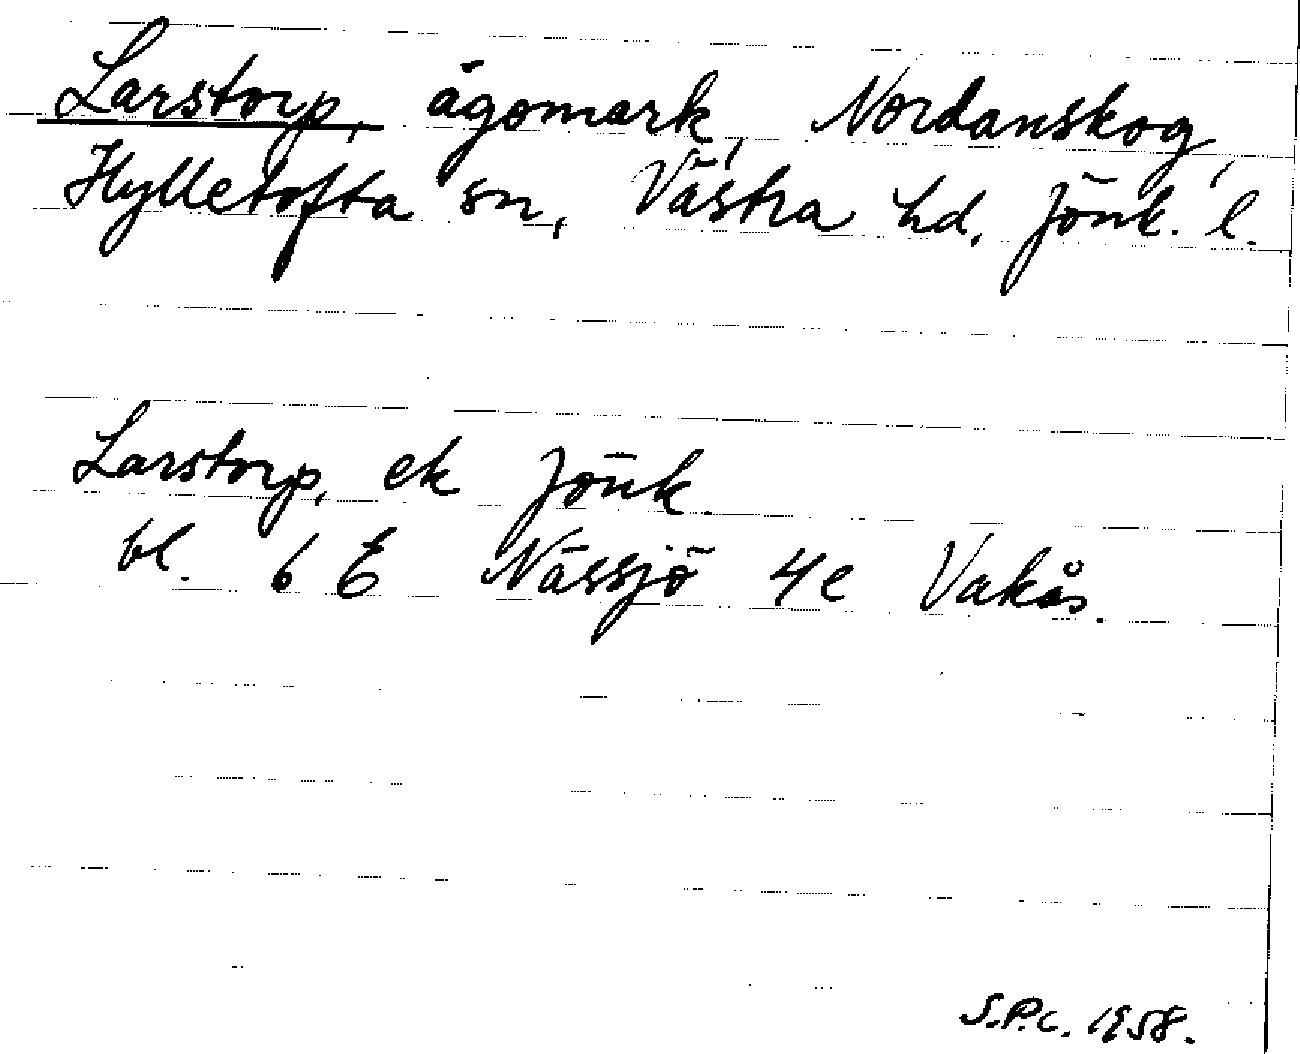 Larstorp, ägomark, Nordanskog,
Hylletofta sn, Västra hd, Jönk. l.
Larstorp, ek Jönk.
bl. 6 E Nässjö 4e Vakås.
S.P.C. 1958.